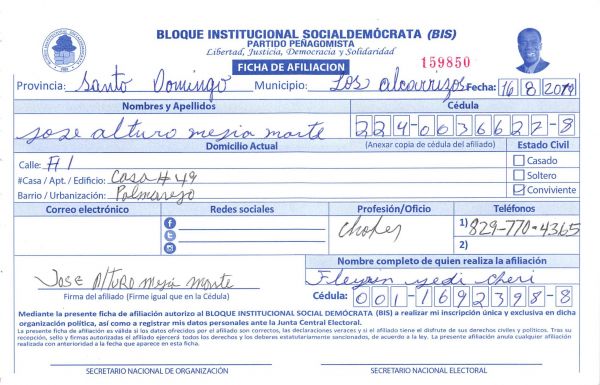 BLOQUE INSTITUCIONAL SOCIALDEMÓCRATA (BIS)
PARTIDO PEÑAGOMISTA
Libertad, Justicia, Democracia y Solidaridad
FICHA DE AFILIACION
159850
Provincia: Santo Domingo Municipio: Los alcarrizos Fecha: 16 8 2019
Nombres y Apellidos Cédula
jose alturo mejia morte 224-0036627-8
Domicilio Actual (Anexar copia de cédula del afiliado) Estado Civil
Calle: #1 Casado
#Casa / Apt. / Edificio: Casa #49 Soltero
Barrio / Urbanización: Palmarejo Conviviente
Correo electrónico Redes sociales Profesión/Oficio Teléfonos
Chofer 1) 829-770-4365
2)
Nombre completo de quien realiza la afiliación
Jose Alturo mejia morte yedi cheri
Firma del afiliado (Firme igual que en la Cédula) Cédula: 001-1692398-8
Mediante la presente ficha de afiliación autorizo al BLOQUE INSTITUCIONAL SOCIAL DEMÓCRATA (BIS) a realizar mi inscripción única y exclusiva en dicha
organización política, así como a registrar mis datos personales ante la Junta Central Electoral.
La presente ficha de afiliación es válida si los datos ofrecidos por el afiliado son correctos, las declaraciones veraces y si el afiliado tiene el disfrute de sus derechos civiles y políticos. Tras su
recepción, sello y firmas autorizadas el afiliado ejercerá todos los derechos y los deberes estatutariamente sancionados, de acuerdo a la ley. La presente afiliación anula cualquier afiliación
realizada con anterioridad a la fecha que aparece en esta ficha.
SECRETARIO NACIONAL DE ORGANIZACIÓN SECRETARIO NACIONAL ELECTORAL